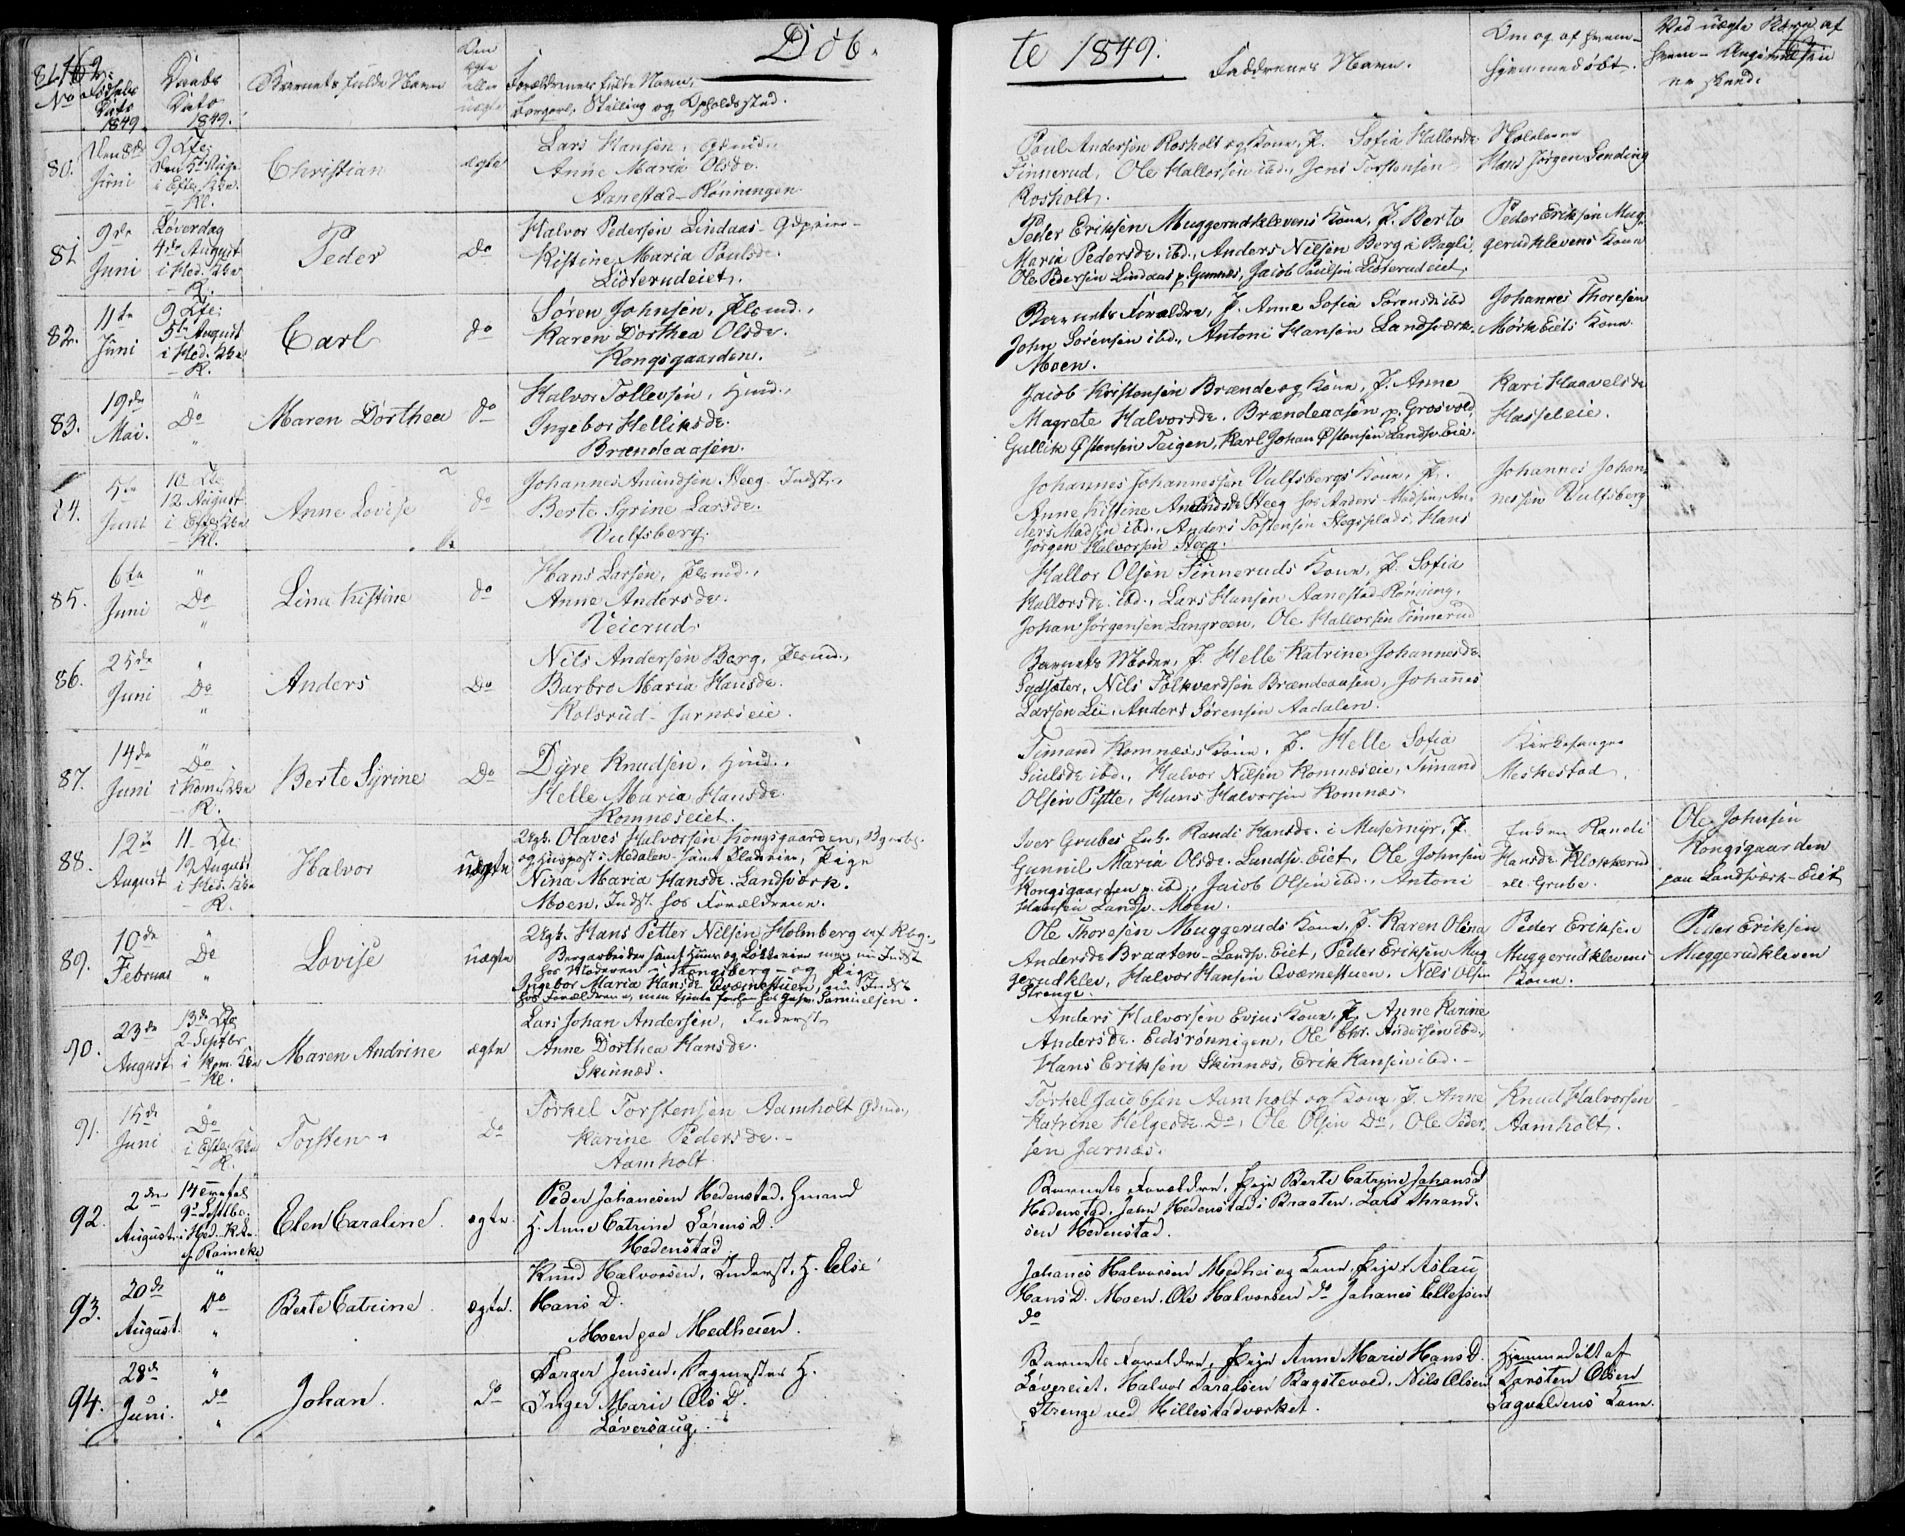 162.
Døb-
te 1849.
No
Fødsels Dato 1849.
Daabs Dato 1849.
Barnets fulde Navn
Den ægte eller uægte
Forældrenes fulde Navn,
Borgerl. Stilling og Opholdssted.
Faddrenes Navn.
Om og af hvem
hjemmedøbt.
Ved uægte Børn af
hvem - Angivelsen
er skeed.
80.
Den 8de
Juni
Christian
ægte
Lars Hansen, Gdmd.,
Anne Maria Olsdr.
Aanestad-Rönningen
Poul Andersen Rosholt og Kone, P. Sofia Hallorsdr.
Tinnerud, Ole Hallorsen ibd., Jens Torstensen
Rosholt.
Skolelærer
Hans Jörgen Sending
81.
9de
Juni
Löverdag
4de August
i Hed. Kke
Peder
Do
Halvor Pedersen Lindaas
Kistine Maria Poulsdr.
Listerudeiet.
Peder Eriksen Muggerudklevens Kone, P. Berte
Maria Pedersdr. ibd., Anders Nilsen Berg i Bagli,
Ole Pedersen Lindaas p. Gunnes, Jacob Poulsen Listerudeiet.
Peder Eriksen Mug-
gerudklevens Kone
82.
11te
Juni
5te August
i Hed. Kke
Carl
do
Søren Johnsen, Plsmd.,
Karen Dorthea Olsdr.
Kongsgaarden.
Barnets Forældre, P. Anne Sofia Sörensdr ibd
John Sörensen ibd., Antoni Hansen Landsværk-
Moen.
Johannes Thoresen
Mörkeeiets Kone
83.
19de
Mai.
Do
Maren Dorthea
do
Halvor Tollevsen, Hmd.,
Ingebor Helliksdr.
Brændeaasen.
Jacob Kristensen Brænde og Kone, P. Anne
Magrete Halvorsdr. Brændeaasen p. Grosvold,
Gullik Østensen Teigen, Karl Johan Østensen Landsv. Eie.
Kari Haavelsdr
Hasseleie.
84.
5te
Juni
12 August
i Efter. Kke
Anne Lovise
do
Johannes Amundsen Steeg Indst.,
Berte Syrine Larsdr.
Vulfsberg.
Johannes Johannessen Vulfsbergs Kone, P.
Anne Kistine Amundsdr Steeg hos Anders Madsen, An-
ders Madsen ibd., Anders Tostensen Stegsplads, Hans
Jörgen Halvorsen Steeg.
Johannes Johan-
nessen Vulfsberg
85.
6te
Juni
Do
Lina Kistine
do
Hans Larsen, Plsmd.,
Anne Andersdr.
Veierud.
Hallor Olsen Tinneruds Kone, P. Sofia
Hallorsdr. ibd., Lars Hansen Aanestad-Rönning,
Johan Jörgensen Langreen, Ole Hallorsen Tinnerud
86.
25de
Juni
Do
Anders
Do
Nils Andersen Berg, Plsmd.,
Barbro Maria Hansdr.
Kolsrud-Jarnæseie.
Barnets Moder, P. Helle Katrine Johannesdr.
Sydsæter, Nils Folkvardsen Brændeaasen, Johannes
Larsen Lii, Anders Sörensen Aadalen.
87.
14de
Juni
Do
i Kom. Kke
Berte Syrine
Do
Dyre Knudsen, Hmd.,
Helle Maria Hansdr.
Komnæseiet.
Simand Komnæs's Kone, P. Helle Sofia
ibd., Halvor Nilsen Komnæseie, Simand
Olsen Pytte, Hans Halvorsen Komnæs
Kirkesanger
Meshestad.
88.
12te
August
19 August
i Hed. Kke
Halvor
uægte
Ugk. Olaves Halvorsen Kongsgaarden,
Pige
Nina Maria Hansdr. Landsværk.
Moen, Indst. hos Forældrene.
Iver Grubes Enk. Randi Hansdr. i Musemyr, P.
Gunnil Maria Olsdr. Landsv. Eiet, Ole Johnsen
Kongsgaarden p. ibd., Jacob Olsen ibd., Antoni
Hansen Landsv. Moen.
Enken Randi
Hansdr. Klokkerud
ell. Grube.
Ole Johnsen
Kongsgaarden
paa Landsværk-Eiet
89.
10de
Februar
Do
Lovise
uægte
Ugk. Hans Petter Nilsen Holmberg af Kbg.,
hos Moderen i Kongsberg og Pige
Ingebor Maria Hansdr. Qværnestuen, nu Indst
Ole Thoresen Muggeruds Kone, P. Karen Olena
Andersdr. Braaten-Landsv. Eiet, Peder Eriksen Mug
gerudklev, Halvor Hansen Qværnestuen, Nils Olsen
Strenge.
Peder Eriksen
Muggerudklevens
Kone.
Peder Eriksen
Muggerudkleven
90.
23de
August
2 Septbr.
i Kom. Kke
Maren Andrine
ægte
Lars Johan Andersen, Inderst
Anne Dorthea Hansdr.
Skinnæs.
Anders Halvorsen Evjus Kone, P. Anne Karine
Andersdr. Eidsrønnigen, Ole Chr. Andersen ibd.,
Hans Eriksen Skinnæs, Erik Hansen ibd.
91.
15de
Juni
Do
i Efter. Kke
Torsten
do
Torkel Torstensen Aamholt Gdmd.,
Karine Pedersdr.
Aamholt
Torkel Jacobsen Aamholt og Kone, P. Anne
Katrine Helgesdr. Do, Ole Olsen Do, Ole Peder-
sen Jarnæs.
Knud Halvorsen
Aamholt.
92.
2den
August
9de Septbr.
i Hed. K.
Elen Caroline.
ægte.
Peder Johanesen Hedenstad, Gmand
H. Anne Catrine Sørens D.
Hedenstad
Barnets Forældre, Pige Berte Catrine Johans D
Hedenstad, John Hedenstad i Braaten, Lars
sen Hedenstad.
93.
30de
August.
Do
Berte Catrine.
ægte.
Knud Halvorsen, Inderst, H. Else
Hans D.
Moen paa Medheien.
Johanes Halvorsen Medhei og Kone, Pige Aslaug
Hans D. Moen, Ole Halvorsen do Johanes Ellefsen
do
94.
28de
Juni.
do
Johan.
do
Torger Jensen, Sagmester H.
Inger Marie Ols D.
Løversaug
Barnets Forældre, Pige Anne Marie Hans D.
Løvereiet, Halvor Bagstevold, Nils Olsen
Strenge ved Hillestadværket.
Hjemmedöbt af
Torsten Olsen
Sagvoldens Kone.